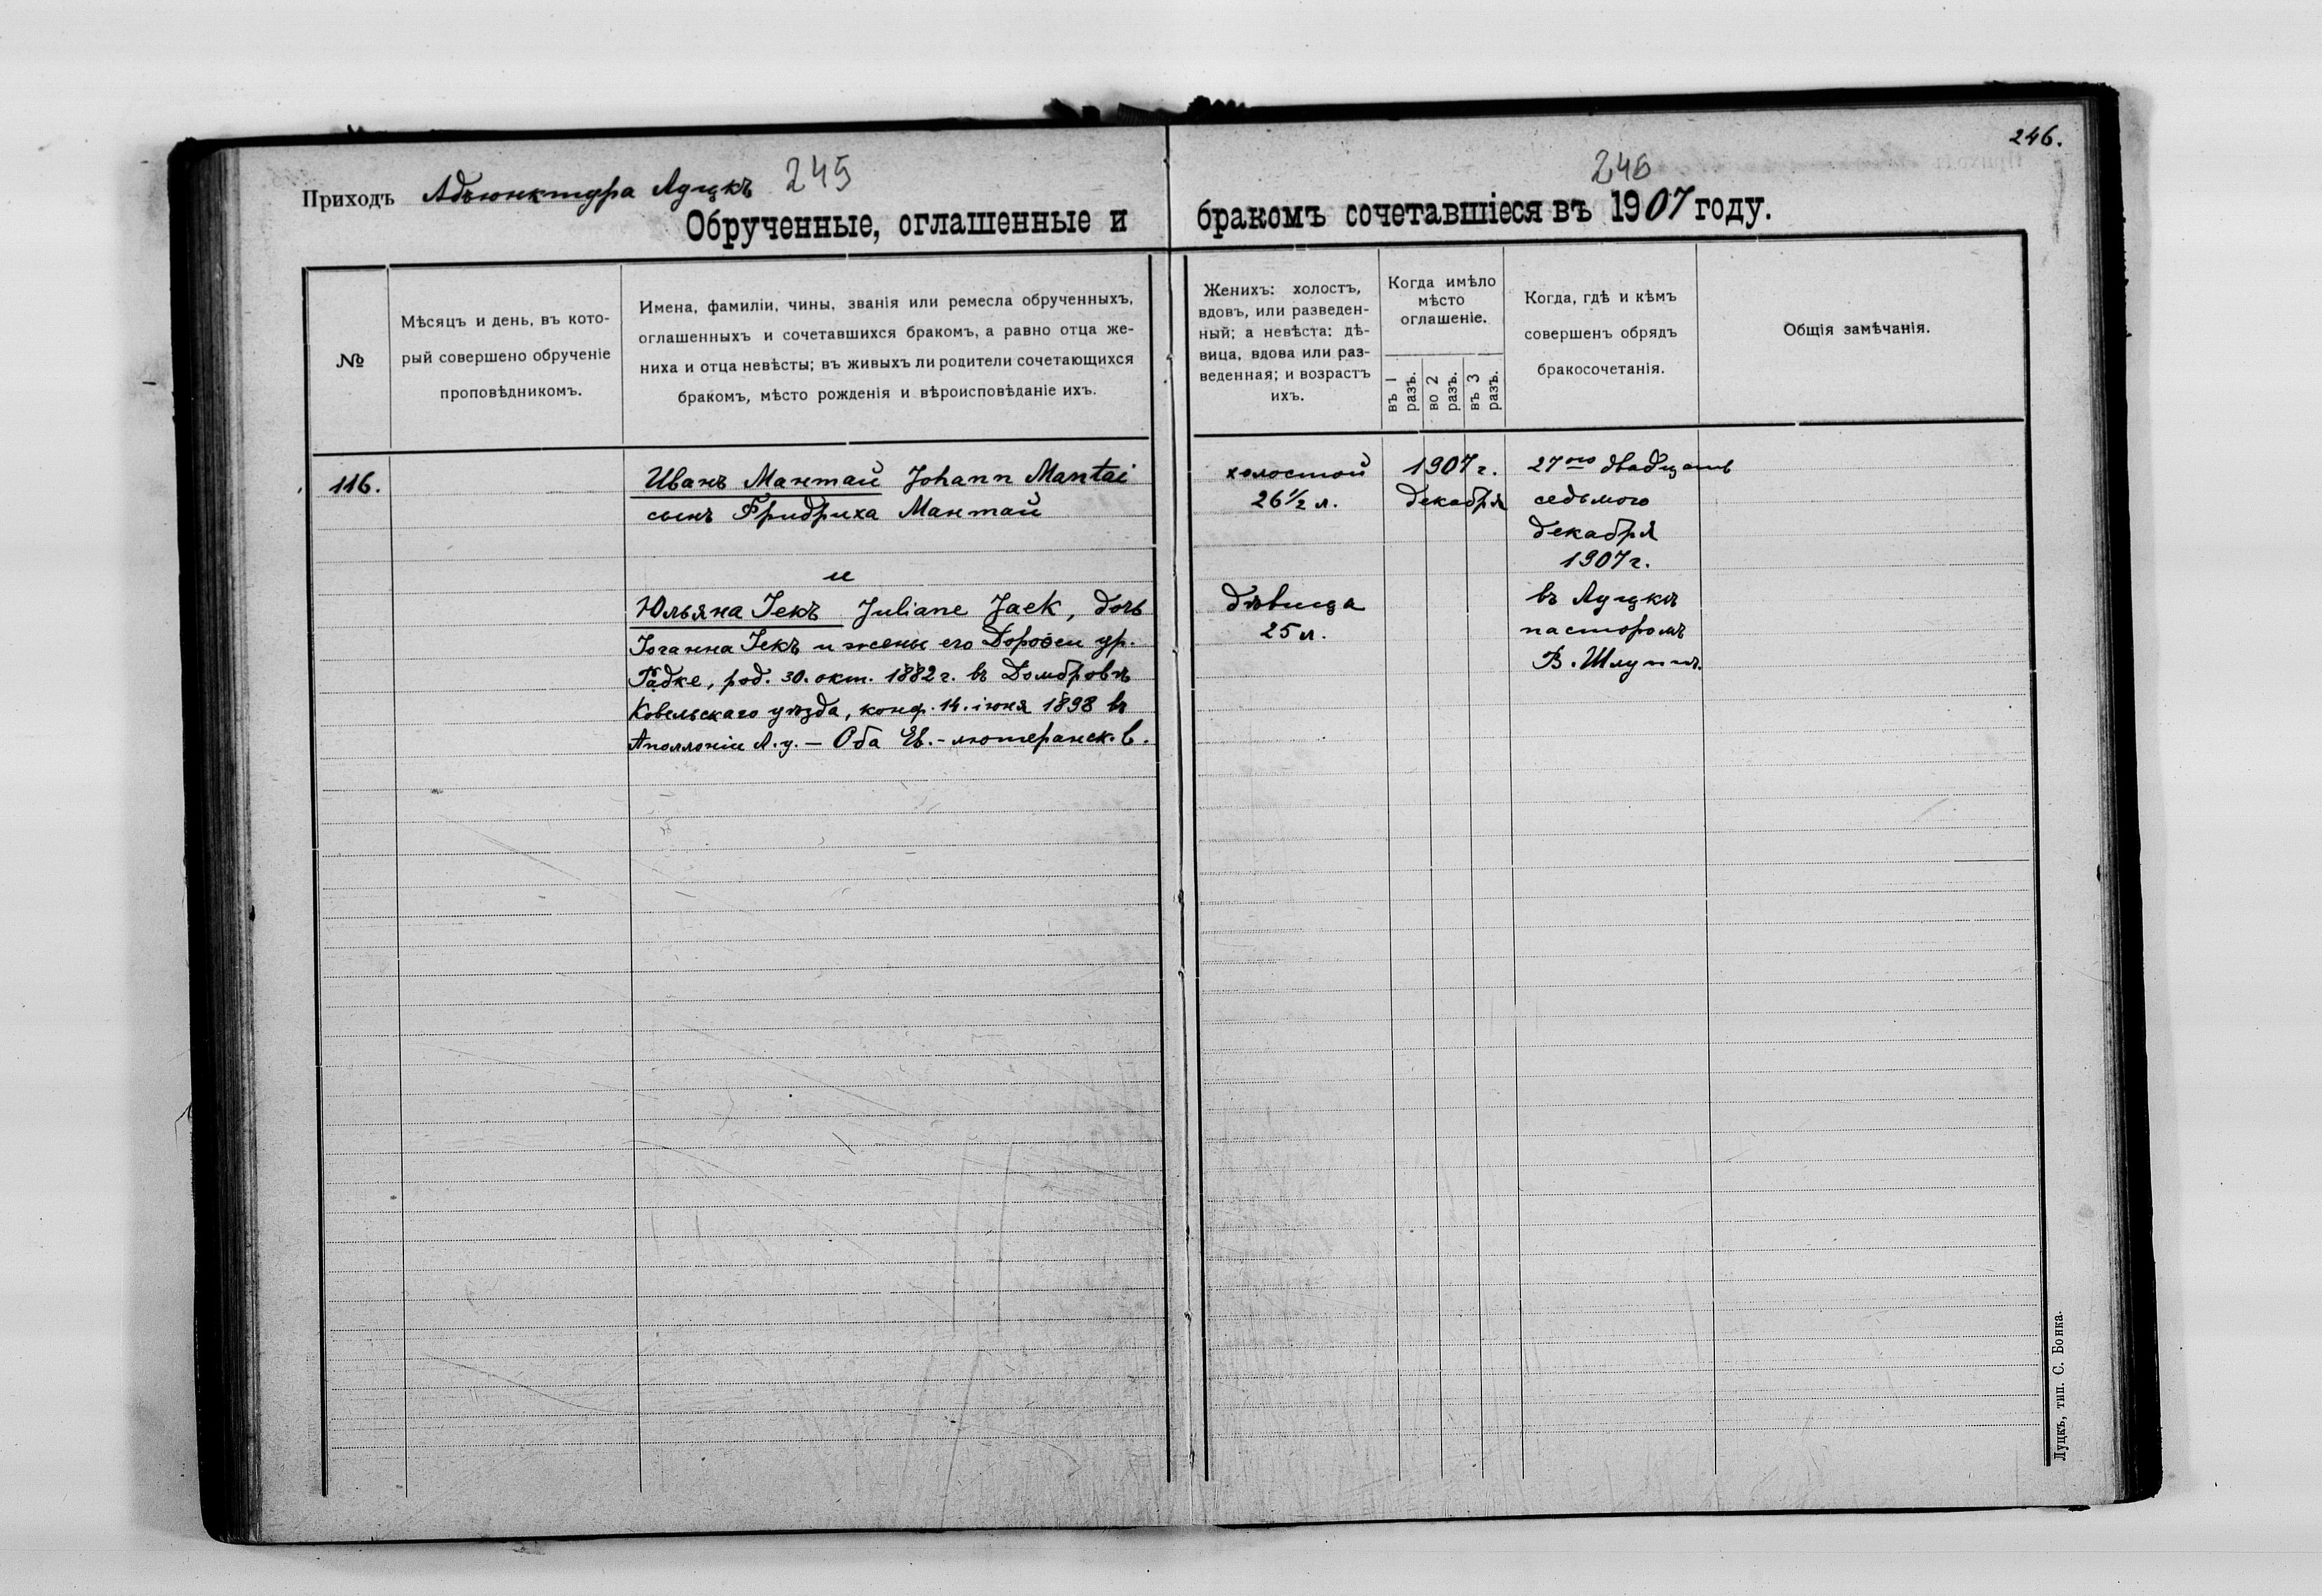 246.
Приходъ Адъюнктура Луцкъ 245
246
Обрученные, оглашенные и бракомъ сочетавшіеся въ 1907 году.
№
Мѣсяцъ и день, въ кото-
рый совершено обрученіе
проповѣдникомъ.
Имена, фамиліи, чины, званія или ремесла обрученныхъ,
оглашенныхъ и сочетавшихся бракомъ, а равно отца же-
ниха и отца невѣсты; въ живыхъ ли родители сочетающихся
бракомъ, мѣсто рожденія и вѣроисповѣданіе ихъ.
Женихъ: холостъ,
вдовъ, или разведен-
ный; а невѣста: дѣ-
вица, вдова или раз-
веденная; и возрастъ
ихъ.
Когда имѣло
мѣсто
оглашеніе.
въ 1
разъ.
во 2
разъ.
въ 3
разъ.
Когда, гдѣ и кѣмъ
совершенъ обрядъ
бракосочетанія.
Общія замѣчанія.
116.
Иванъ Мантай Johann Mantai
сынъ Фридриха Мантай
и
Юльяна Іекъ Juliane Jaek, дочь
Іоганна Іекъ и жены его Доровеи ур.
Радке, род. 30. окт. 1882 г. въ Домбровѣ
Ковельскаго уѣзда, конф. 14. іюня 1898 въ
Аполлоніи Л. у. — Оба Ев.-лютеранск. в.
холостой
26½ л.
дѣвица
25 л.
1907 г.
декабря
27ого двадцать
седьмого
декабря
1907 г.
въ Луцкѣ
пасторомъ
В. Шлуппъ.
Луцкъ, тип. С. Бонка.